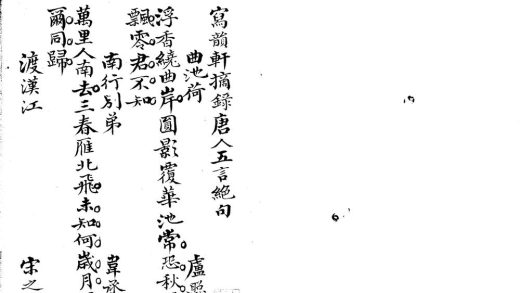 寫韻軒摘錄唐人五言絕句
曲池荷 盧照
浮香繞曲岸圓影覆華池常恐秋
飄零君不知
南行別弟 韋承
萬里人南去三春雁北飛未知何歲月
爾同歸
渡漢江 宋之